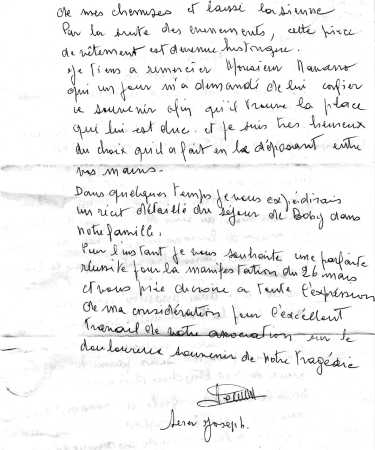 de mes chemises et laissé la sienne
Par la suite des évenements, cette pièce
de vêtement est devenue historique.
Je tiens a remercier Monsieur Navarro
qui un jour m'a demandé de lui confier
ce souvenir afin qu'il trouve la place
que lui est due. et je suis très heureux
du choix qu'il a fait en la déposant entre
vos mains.
Dans quelques temps je vous expédirais
un récit détaillé du séjour de Boby dans
notre famille.
Pour l'instant je vous souhaite une parfaite
réussite pour la manifestation du 26 mars
et vous prie de croire a toute l'expression
de ma considération pour l'excellent
travail de notre association sur le
douloureux souvenir de notre tragédie
Joseph.